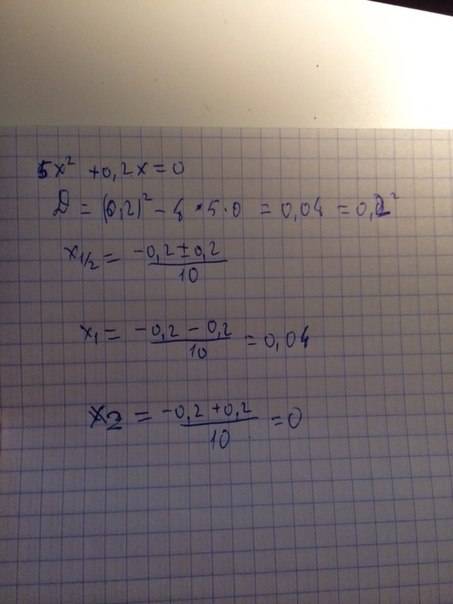 5x² + 0,2x = 0
D = (0,2)² - 4 * 5 · 0 = 0,04 = 0,2²
x₁/₂ = (-0,2 ± 0,2)/10
x₁ = (-0,2 - 0,2)/10 = 0,04
x₂ = (-0,2 + 0,2)/10 = 0